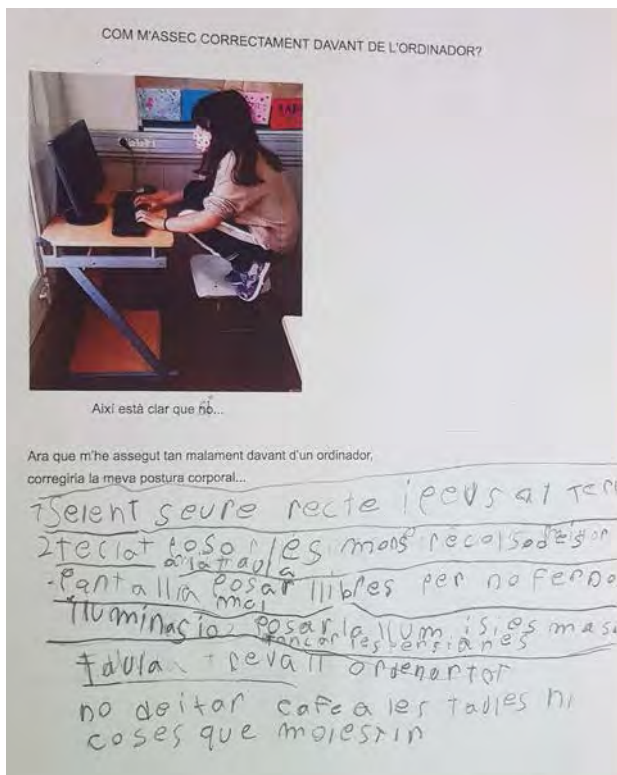 COM M'ASSEC CORRECTAMENT DAVANT DE L'ORDINADOR?
Així està clar que no...
Ara que m'he assegut tan malament davant d'un ordinador,
corregiria la meva postura corporal...
1 Seient seure recte i peus al terr
2 teclat posar les mons recolsades
a la taula
Pantallia posar llibres per no fer
mal
Iluminasio posar la llum i si es mas
tancar les persianes
taula trevall ordenartor
no deitar cafe a les taules ni
coses que molestin